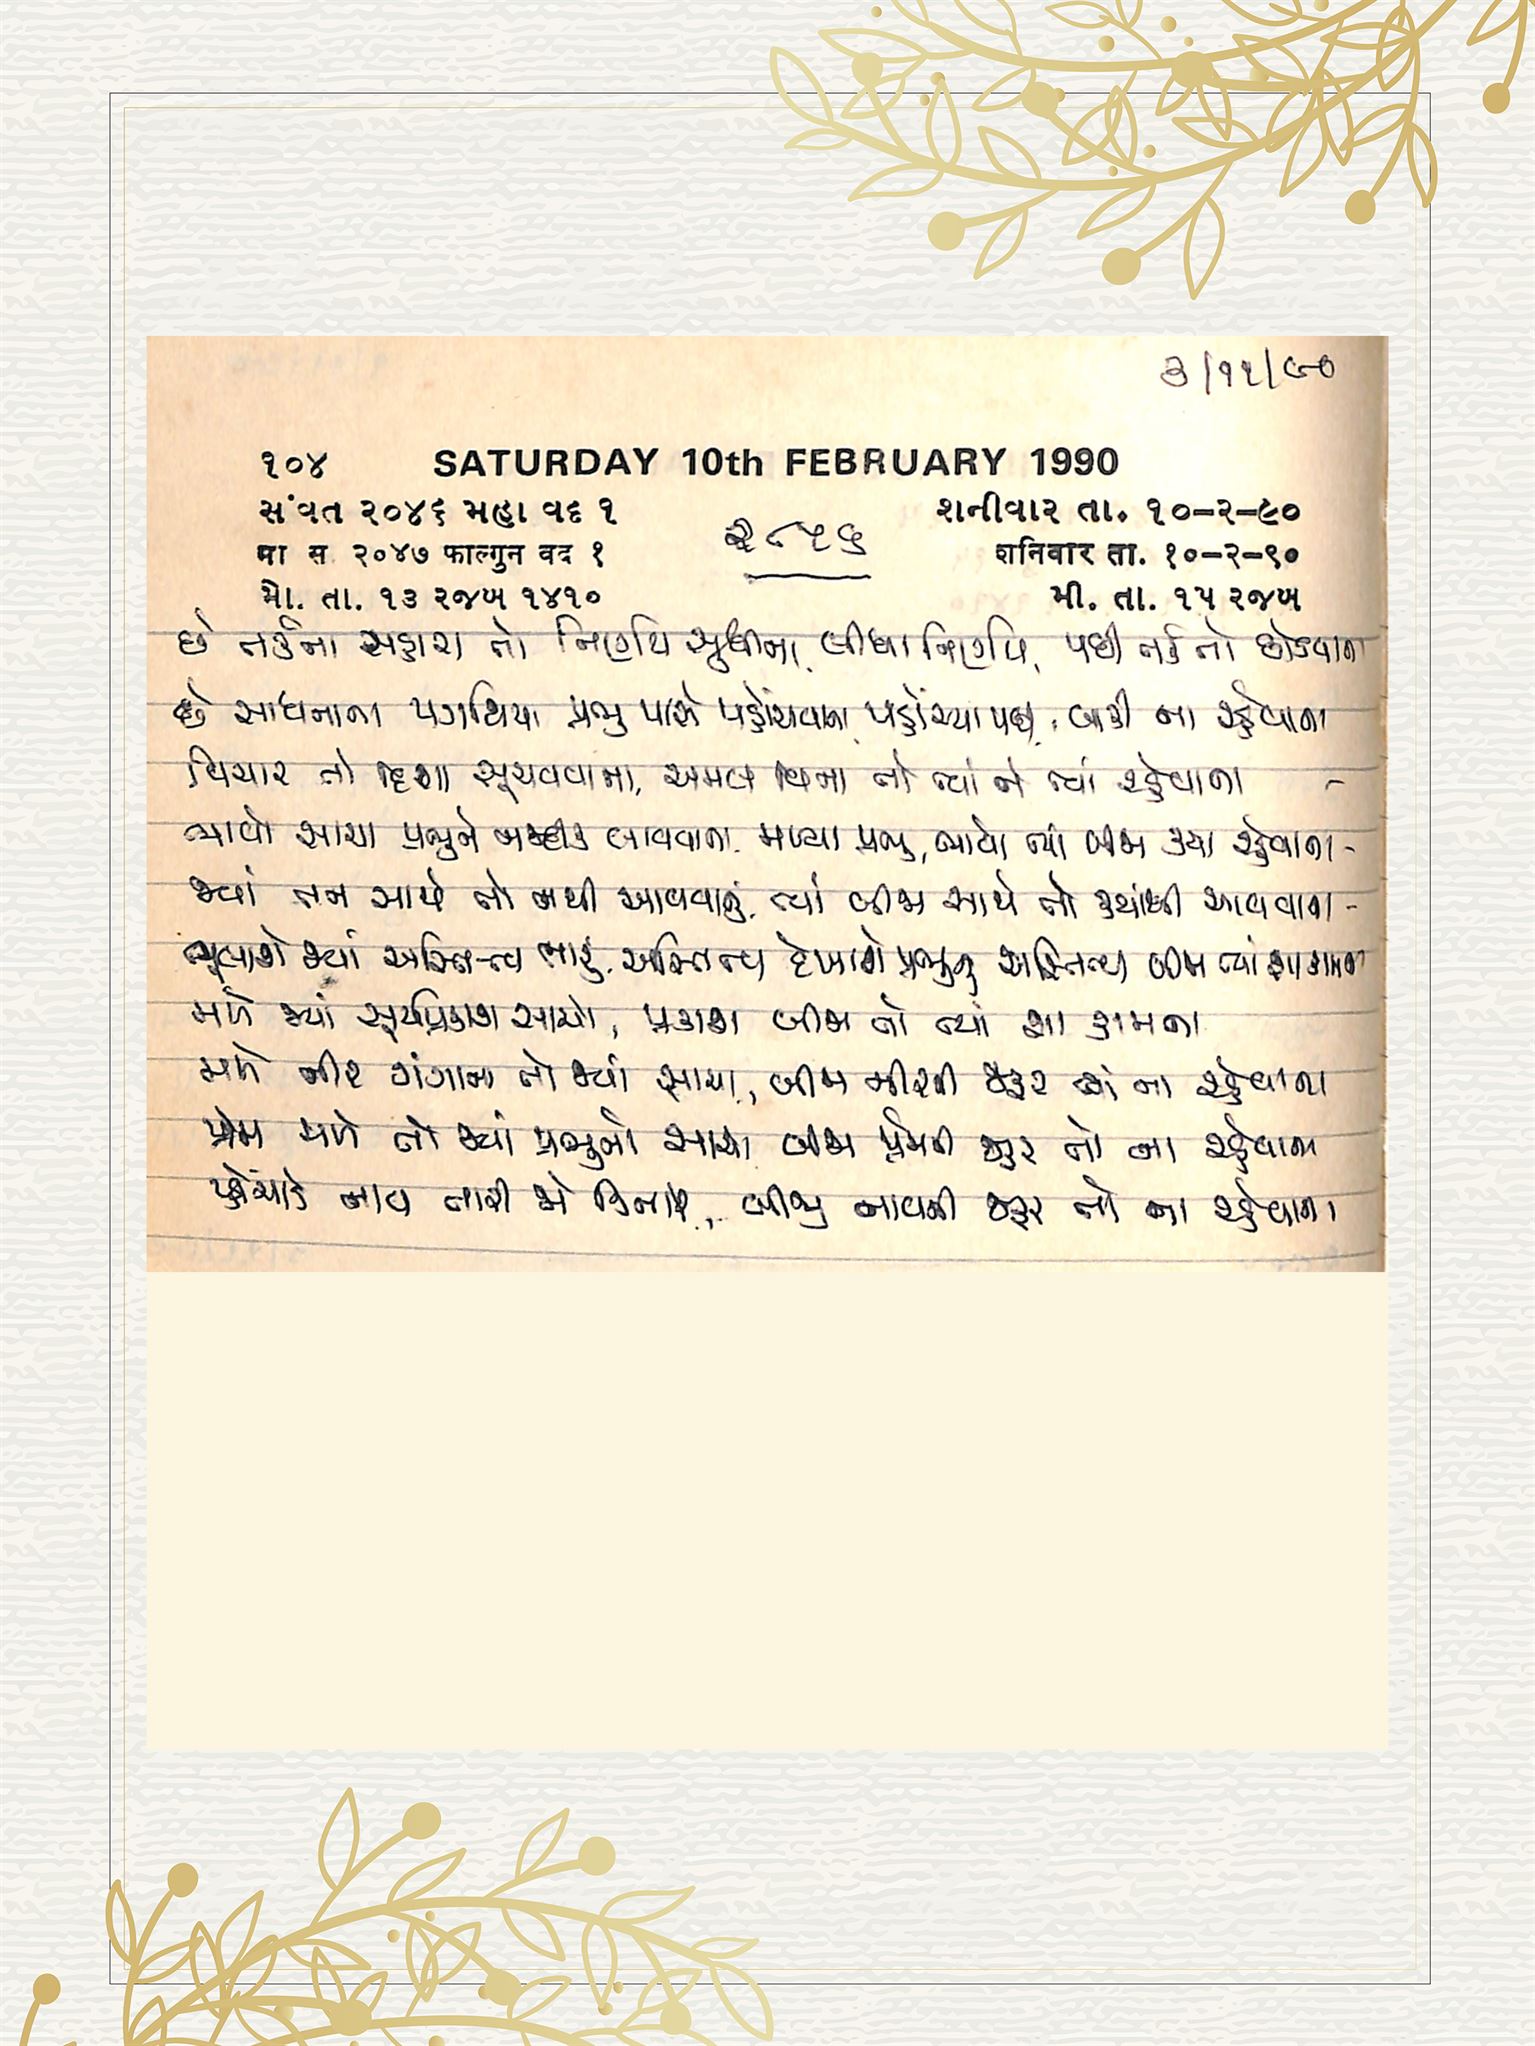 ૩/૧૧/૯૦
૧૦૪ SATURDAY 10th FEBRUARY 1990
સંવત ૨૦૪૬ મહા વદ ૧ શનીવાર તા. ૧૦-૨-૯૦
૨૮૫૬
मा स. २०४७ फाल्गुन वद १ शनिवार ता. १०-२-९०
મો. તા. ૧૩ રજબ ૧૪૧૦ મી. તા. ૧૫ રજબ
છે તર્કના સહારા તો નિર્ણય સુધીના, લીધા નિર્ણય, પછી તર્ક તો છોડવાના
છે સાધનાના પગથિયા પ્રભુ પાસે પહોંચવાના, પહોંચ્યા પછી, બાકી ના રહેવાના
વિચાર તો દિશા સૂચવવાના, અમલ વિના તો ત્યાં ને ત્યાં રહેવાના -
ભાવો સાચા પ્રભુને નજદીક લાવવાના. મળ્યા પ્રભુ, ભાવો ત્યાં બીજા ક્યા રહેવાના -
જ્યાં તન સાથે તો નથી આવવાનું, ત્યાં બીજા સાથે તો ક્યાંથી આવવાના -
ભૂલાશે જ્યાં અસ્તિત્વ મારું, અસ્તિત્વ દેખાશે પ્રભુનુ અસ્તિત્વ બીજા ત્યાં શા કામના
મળે જ્યાં સૂર્યપ્રકાશ સાચો, પ્રકાશ બીજા તો ત્યાં શા કામના
મળે નીર ગંગાના તો જ્યાં સાચા, બીજા નીરની જરૂર ત્યાં ના રહેવાના
પ્રેમ મળે તો જ્યાં પ્રભુનો સાચા બીજા પ્રેમની જરૂર તો ના રહેવાના
પહોંચાડે નાવ તારી જે કિનારે, બીજી નાવની જરૂર તો ના રહેવાના